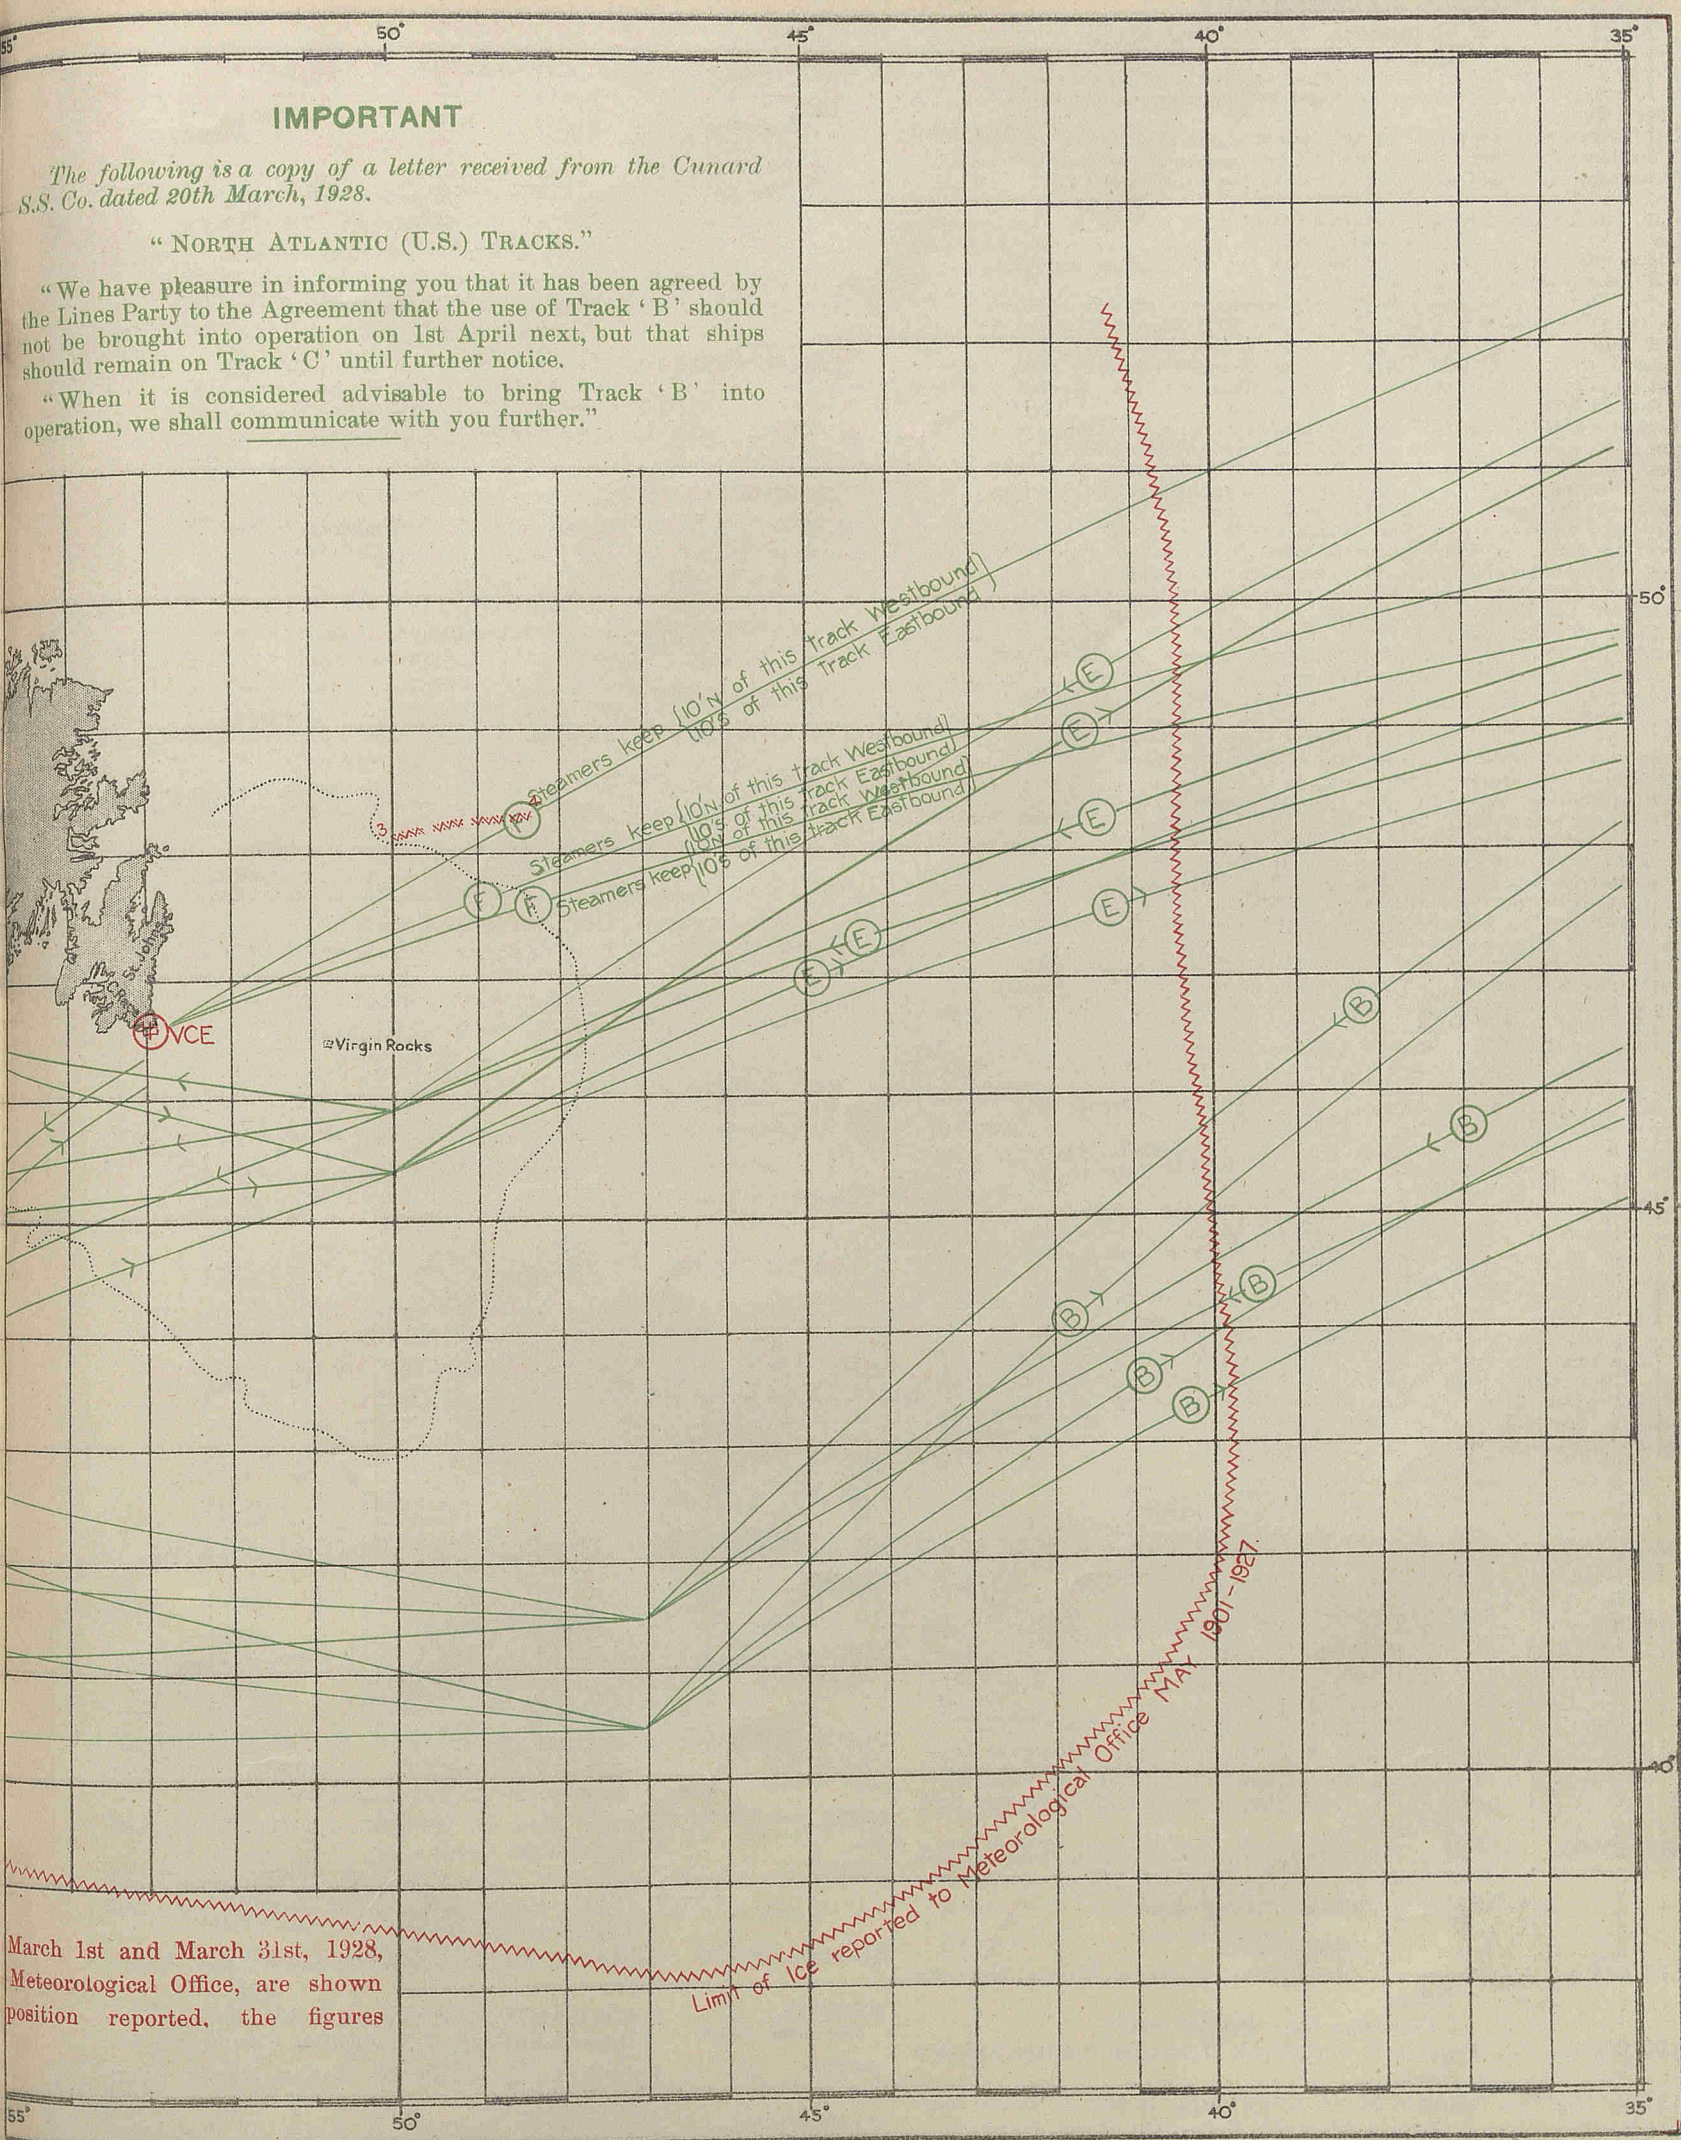 55° 50° 45° 40° 35°
IMPORTANT
The following is a copy of a letter received from the Cunard
S.S. Co. dated 20th March, 1928.
“ NORTH ATLANTIC (U.S.) TRACKS.”
“We have pleasure in informing you that it has been agreed by
the Lines Party to the Agreement that the use of Track ‘ B ’ should
not be brought into operation on 1st April next, but that ships
should remain on Track ‘ C ’ until further notice.
“When it is considered advisable to bring Track ‘ B ’ into
operation, we shall communicate with you further.”
50°
Steamers keep {10'N of this track Westbound}
{10'S of this track Eastbound}
E
E
Steamers keep {10'N of this track Westbound}
{10'S of this track Eastbound}
{10'N of this track Westbound}
Steamers keep {10'S of this track Eastbound}
3
F
E
F
F
E
E
E
St Johns
VCE
Virgin Rocks
B
B
45°
B
B
B
B
MAY 1901-1927.
40°
Limit of Ice reported to Meteorological Office
March 1st and March 31st, 1928,
Meteorological Office, are shown
position reported, the figures
55° 50° 45° 40° 35°